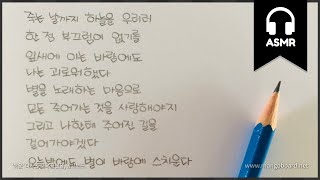 ASMR
죽는 날까지 하늘을 우러러
한 점 부끄럼이 없기를
잎새에 이는 바람에도
나는 괴로워했다
별을 노래하는 마음으로
모든 죽어가는 것을 사랑해야지
그리고 나한테 주어진 길을
걸어가야겠다
오늘밤에도 별이 바람에 스치운다